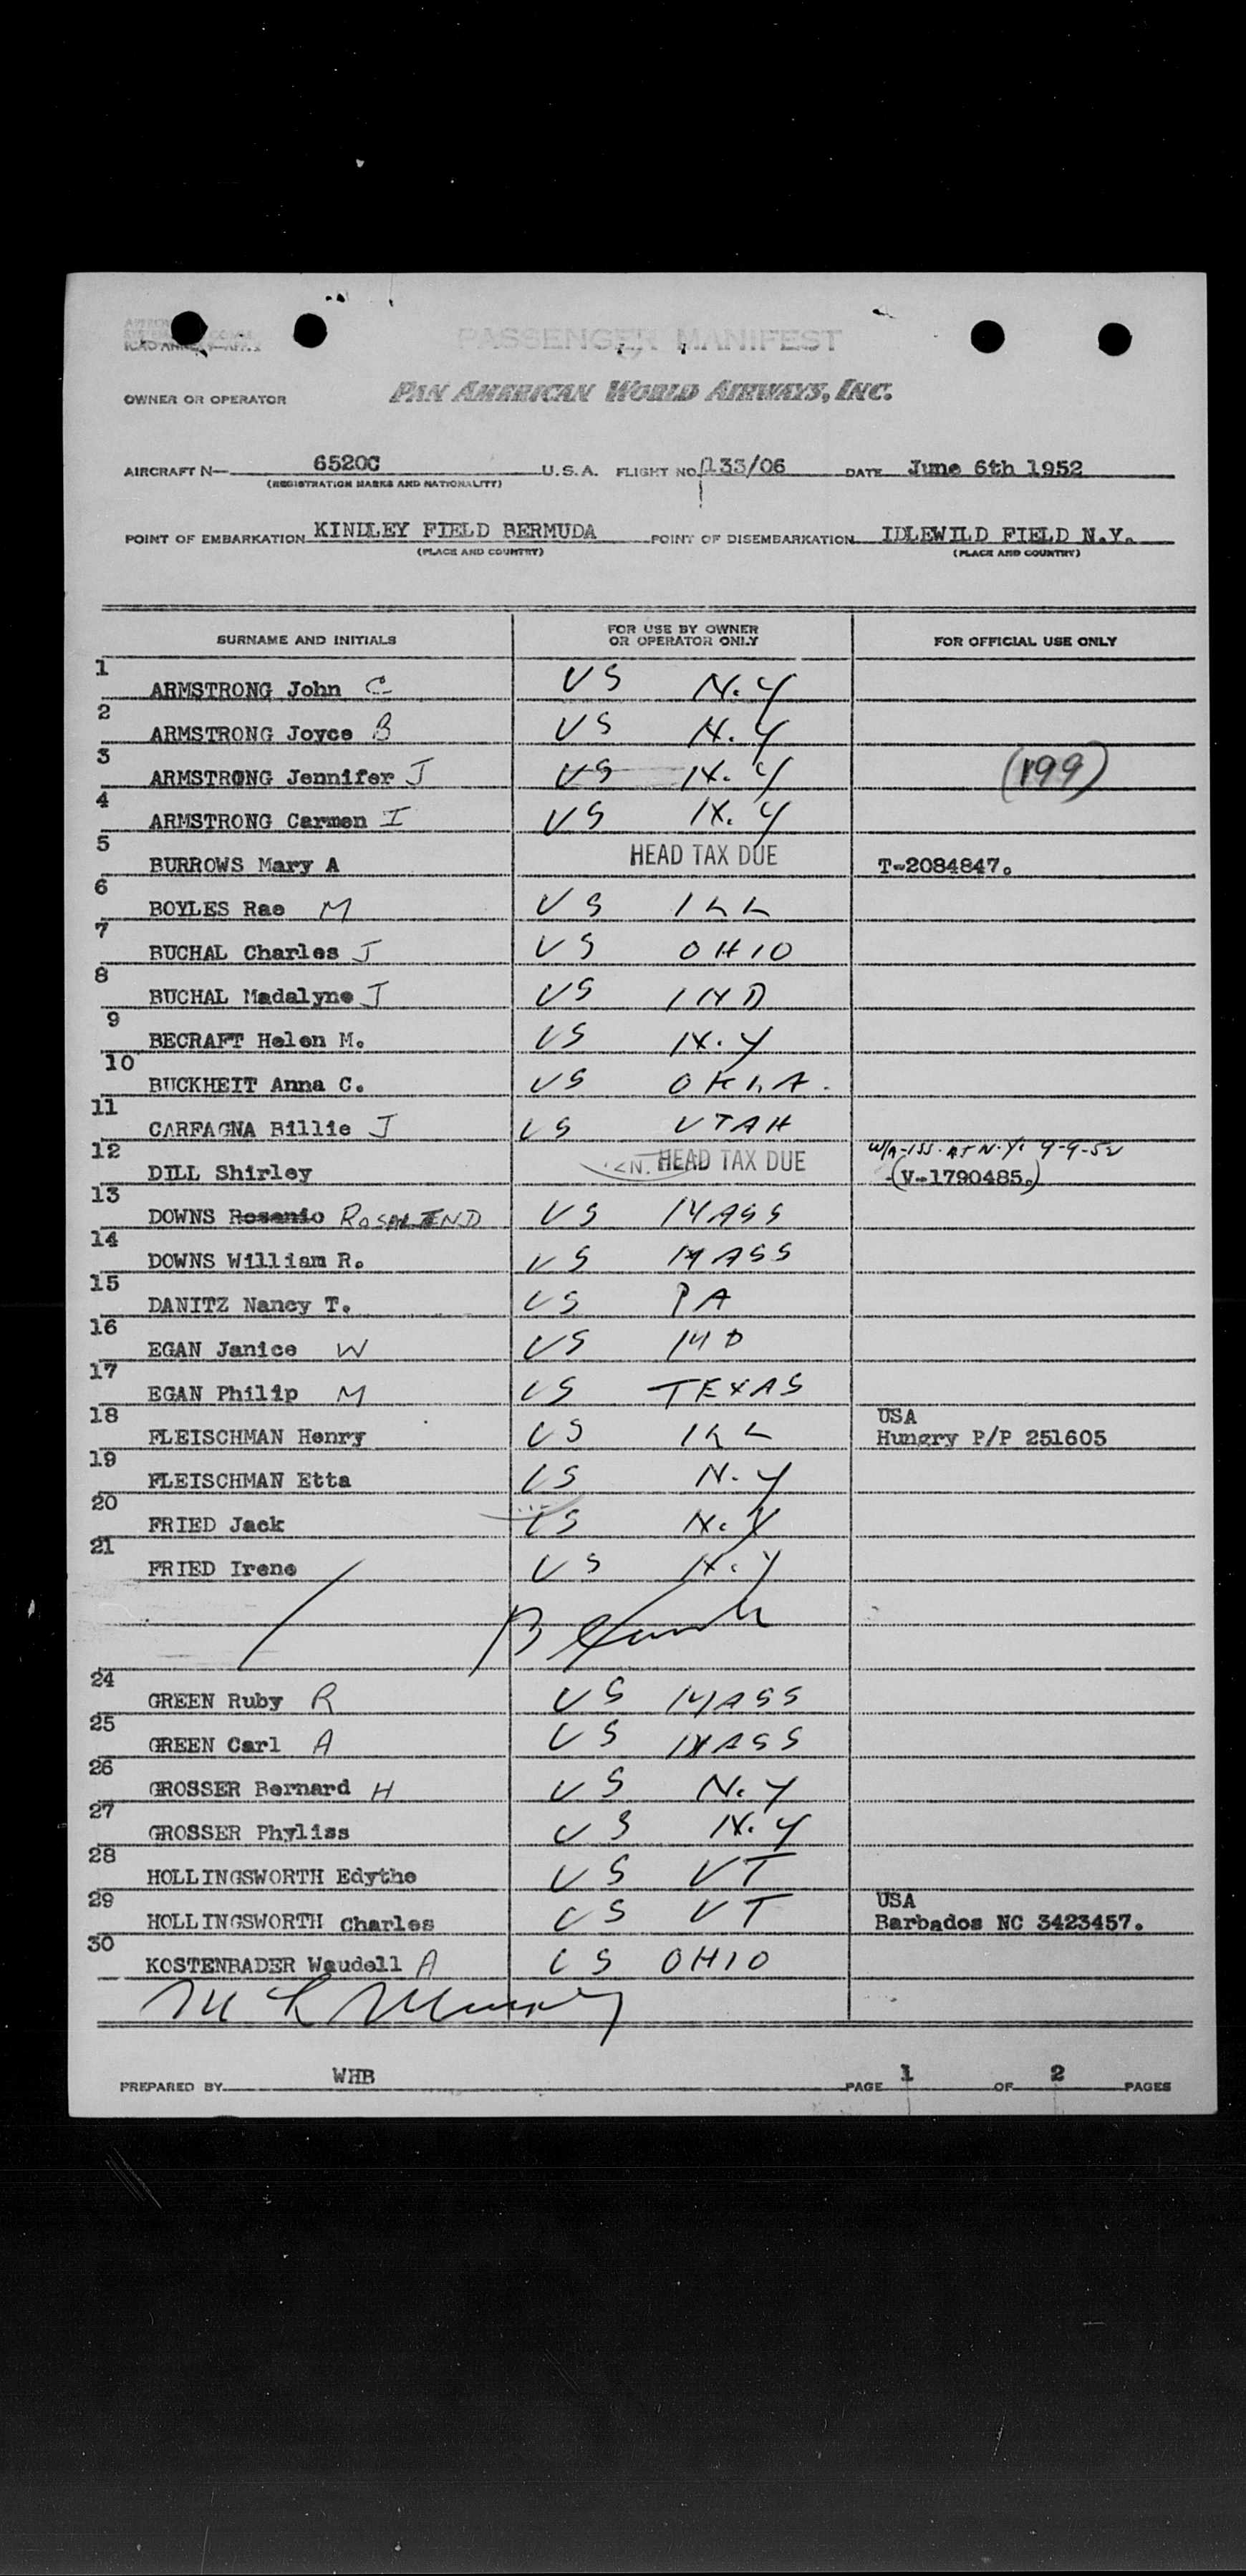 PASSENGER MANIFEST
OWNER OR OPERATOR PAN AMERICAN WORLD AIRWAYS, INC.
AIRCRAFT N— 6520C U.S.A. FLIGHT NO. 133/06 DATE June 6th 1952
(REGISTRATION MARKS AND NATIONALITY)
POINT OF EMBARKATION KINDLEY FIELD BERMUDA POINT OF DISEMBARKATION IDLEWILD FIELD N.Y.
(PLACE AND COUNTRY) (PLACE AND COUNTRY)
SURNAME AND INITIALS FOR USE BY OWNER OR OPERATOR ONLY FOR OFFICIAL USE ONLY
1 ARMSTRONG John C US N.Y
2 ARMSTRONG Joyce B US N.Y
3 ARMSTRONG Jennifer J US N.Y (199)
4 ARMSTRONG Carmen I US N.Y
5 BURROWS Mary A HEAD TAX DUE T-2084847.
6 BOYLES Rae M US ILL
7 BUCHAL Charles J US OHIO
8 BUCHAL Madalyne J US IND
9 BECRAFT Helen M. US N.Y
10 BUCKHEIT Anna C. US OKLA.
11 CARFAGNA Billie J US UTAH
12 DILL Shirley HEAD TAX DUE W/A-ISS. AT N.Y. 9-9-52
(V-1790485.)
13 DOWNS Rosanio ROSALIND US MASS
14 DOWNS William R. US MASS
15 DANITZ Nancy T. US PA
16 EGAN Janice W US MD
17 EGAN Philip M US TEXAS
18 FLEISCHMAN Henry US ILL USA
Hungry P/P 251605
19 FLEISCHMAN Etta US N.Y
20 FRIED Jack US N.Y
21 FRIED Irene US N.Y
24 GREEN Ruby R US MASS
25 GREEN Carl A US MASS
26 GROSSER Bernard H US N.Y
27 GROSSER Phyliss US N.Y
28 HOLLINGSWORTH Edythe US VT
29 HOLLINGSWORTH Charles US VT USA
Barbados NC 3423457.
30 KOSTENBADER Waudell A US OHIO
PREPARED BY WHB PAGE 1 OF 2 PAGES